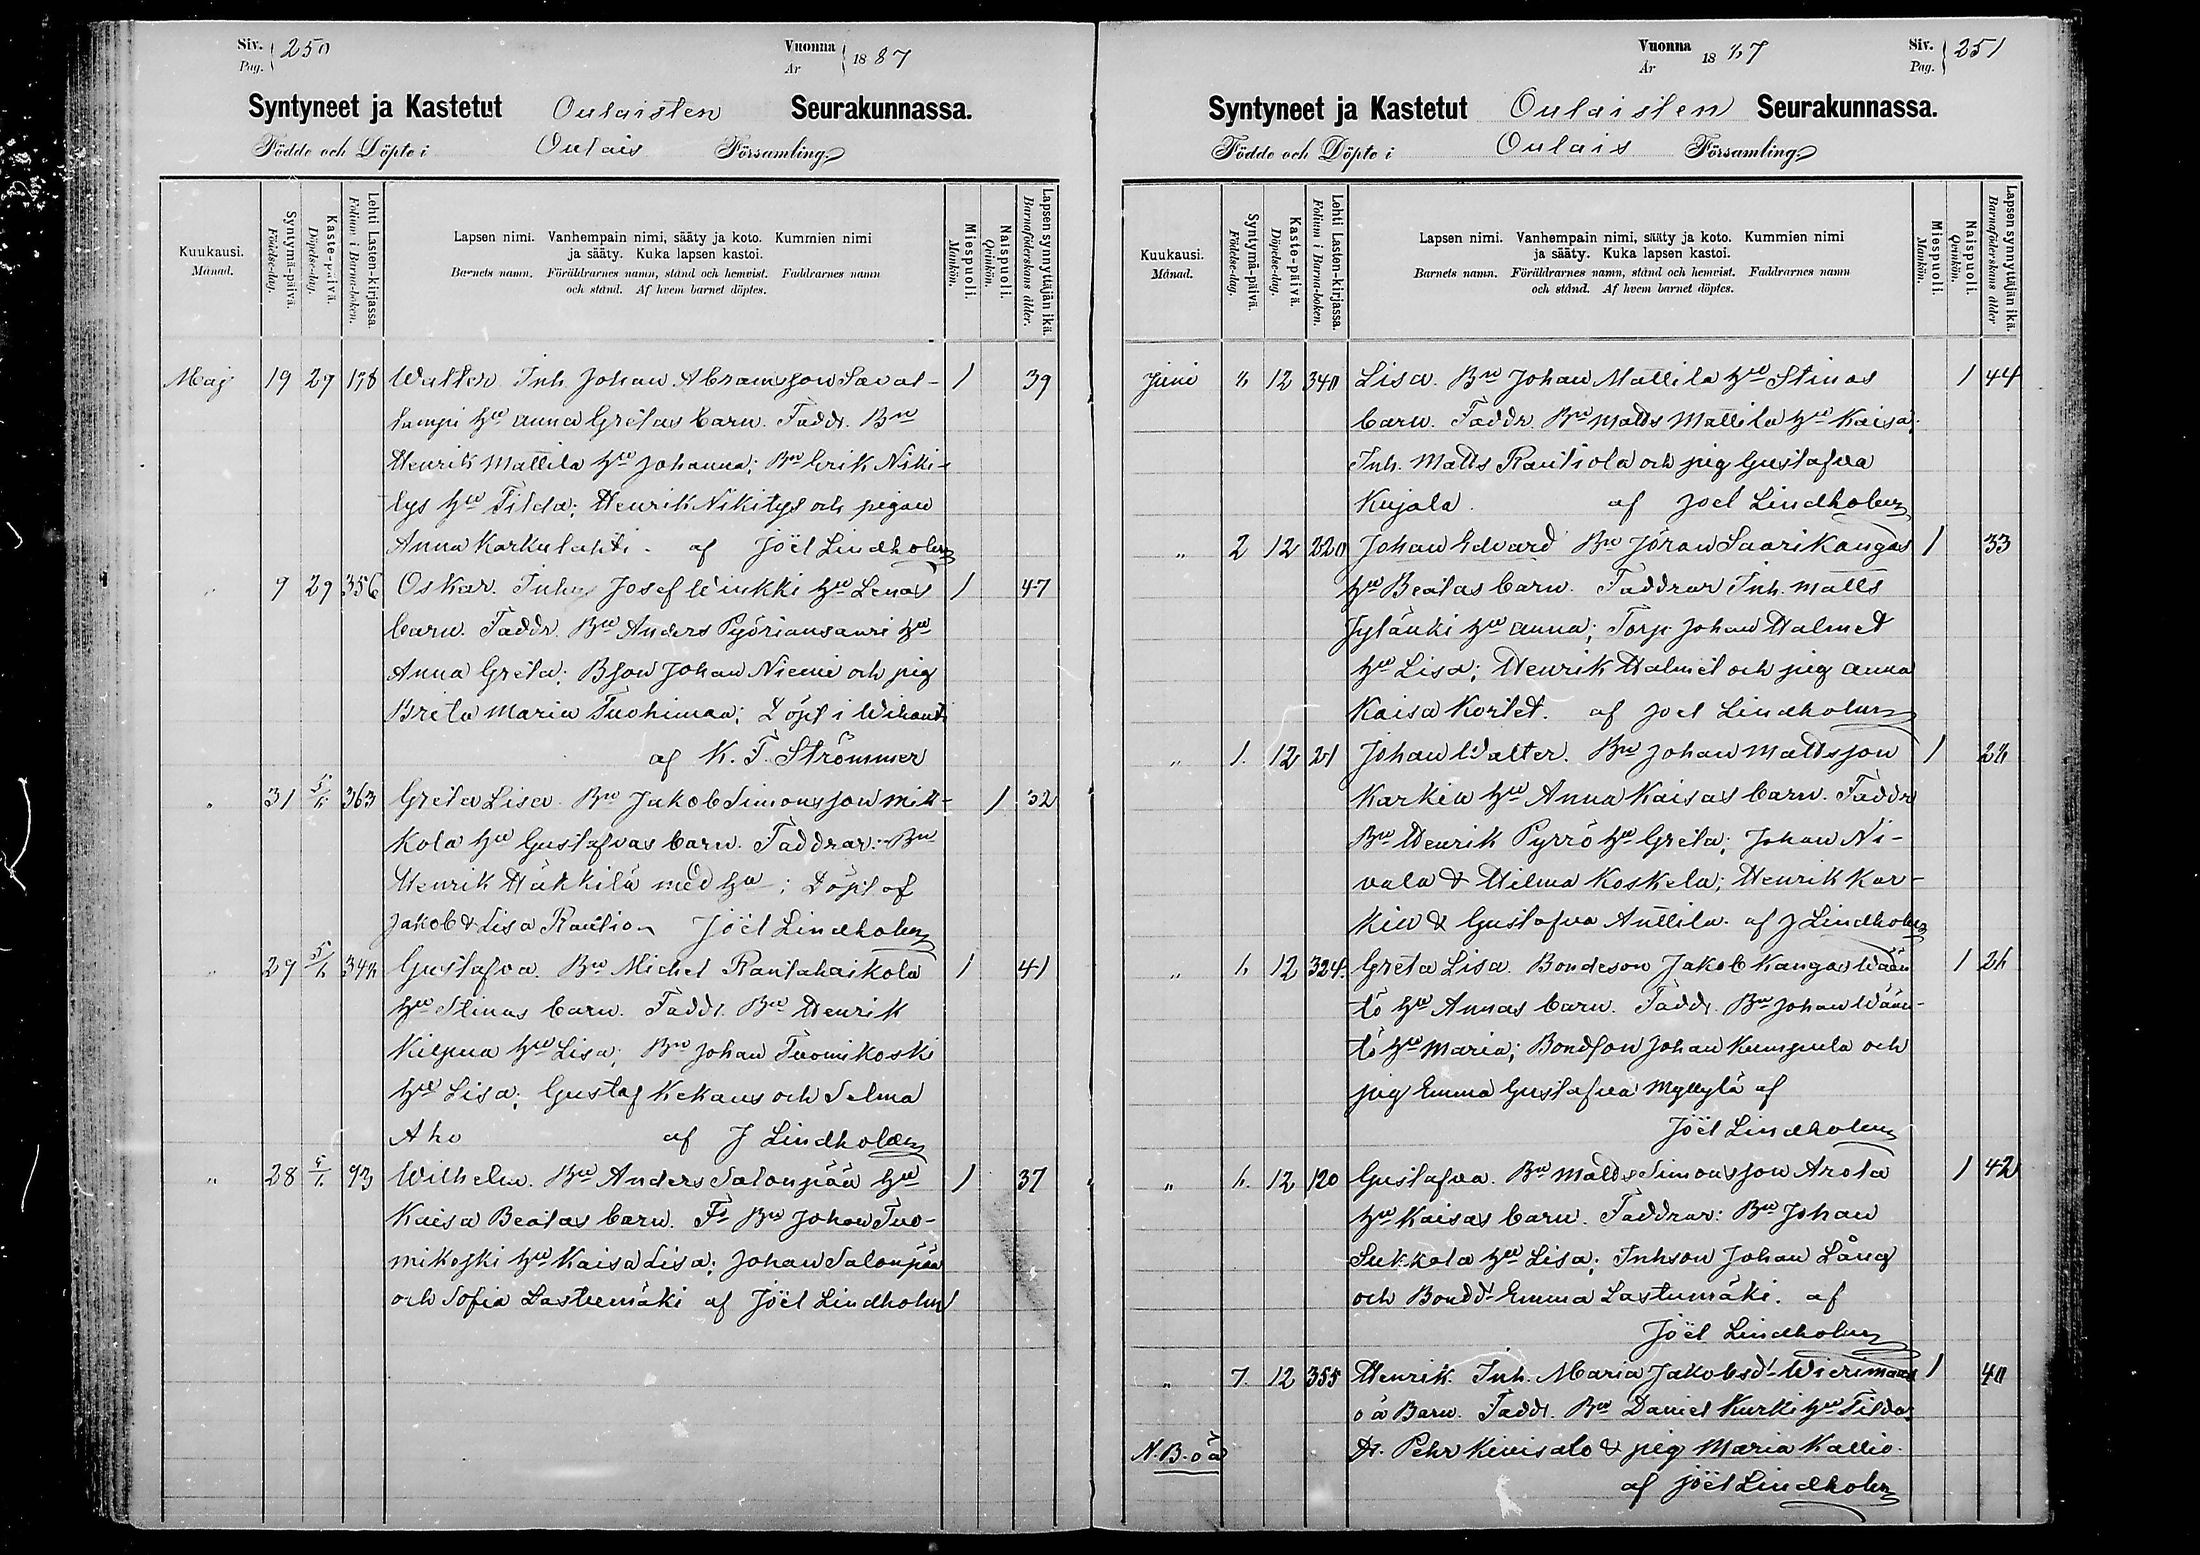 Siv. Pag. 250
Vuonna År 1887
Syntyneet ja Kastetut Oulaisten Seurakunnassa.
Födde och Döpte i Oulais Församling
Kuukausi. Månad.
Syntymä-päivä. Födelse-dag.
Kaste-päivä. Döpelse-dag.
Lehti Lasten-kirjassa. Folium i Barna-boken.
Lapsen nimi. Vanhempain nimi, sääty ja koto. Kummien nimi
ja sääty. Kuka lapsen kastoi.
Barnets namn. Föräldrarnes namn, stånd och hemvist. Faddrarnes namn
och stånd. Af hvem barnet döptes.
Miespuoli. Mankön.
Naispuoli. Qvinkön.
Lapsen synnyttäjän ikä. Barnaföderskans ålder.
Maj 19 29 198 Walter Inh Johan Abramsson Saval- 1 39
lampi hu Anna Gretas barn. Faddr. Bn
Henrik Mattila hu Johanna; Bn Erik Niki-
tys hu Tilda; Henrik Nikitys och pigan
Anna Karkulahti. af Joël Lindholm
" 9 29 356 Oskar. Inhys Josef Winkki hu Lenas 1 47
barn. Faddr. Bn Anders Pyöriansaari hu
Anna Greta; Bson Johan Niemi och pig
Brita Maria Tuohimaa; Döpt i Wihanti
af K. F. Strömmer
" 31 5/6 363 Greta Lisa. Bn Jakob Simonsson Mik- 1 32
kola hu Gustafvas barn. Faddrar: Bn
Henrik Häkkilä med hu; Döpt af
Jakob & Lisa Rautio Joël Lindholm
" 29 5/6 348 Gustafva. Bn Michel Rautahaikola 1 41
hu Stinas barn. Faddr. Bn Henrik
Kilpua hu Lisa; Bn Johan Tuomikoski
hu Lisa; Gustaf Kekaus och Selma
Aho af J Lindholm
" 28 5/6 93 Wilhelm. Bn Anders Salonpää hu 1 37
Kaisa Beatas barn. Fr Bn Johan Tuo-
mikoski hu Kaisa Lisa; Johan Salonpää
och Sofia Lastumäki af Joël Lindholm
Vuonna År 1887
Siv. Pag. 251
Syntyneet ja Kastetut Oulaisten Seurakunnassa.
Födde och Döpte i Oulais Församling
Kuukausi. Månad.
Syntymä-päivä. Födelse-dag.
Kaste-päivä. Döpelse-dag.
Lehti Lasten-kirjassa. Folium i Barna-boken.
Lapsen nimi. Vanhempain nimi, sääty ja koto. Kummien nimi
ja sääty. Kuka lapsen kastoi.
Barnets namn. Föräldrarnes namn, stånd och hemvist. Faddrarnes namn
och stånd. Af hvem barnet döptes.
Miespuoli. Mankön.
Naispuoli. Qvinkön.
Lapsen synnyttäjän ikä. Barnaföderskans ålder
Juni 12 340 Lisa. Bn Johan Mattila hu Stinas 1 44
barn. Faddr. Bn Matts Mattila hu Kaisa;
Inh. Matts Rautiola och pig Gustafva
Kujala. af Joel Lindholm
" 2 12 220 Johan Edvard Bn Jöran Saarikangas 1 33
hu Beatas barn. Faddrar Inh. Matts
Jylänki hu Anna; Torp Johan Halmet
hu Lisa; Henrik Halmet och pig Anna
Kaisa Kortet. af Joel Lindholm
" 1. 12 21 Johan Walter. Bn Johan Mattsson 1 28
Karkia hu Anna Kaisas barn. Faddr
Bn Henrik Pyrrö hu Greta; Johan Ni-
vala & Hilma Koskela; Henrik Kar-
kia & Gustafva Anttila. af J Lindholm
" 6. 12 324. Greta Lisa. Bondeson Jakob Kangas Wään 1 26
tö hu Annas barn. Faddr. Bn Johan Wään-
tö hu Maria; Bondson Johan Kumpula och
pig Emma Gustafva Myllylä af
Joël Lindholm
" 6. 12 120 Gustafva. Bn Matts Simonsson Arola 1 42
hu Kaisas barn. Faddrar: Bn Johan
Sukkola hu Lisa; Inhson Johan Lång
och Bondd. Emma Lastumäki. af
Joël Lindholm
" 7. 12 355 Henrik. Inh. Maria Jakobsdr Wierimaas 1 40
o ä Barn. Faddr. Bn Daniel Kurki hu Tilda;
N.B. o ä Dr. Pehr Kivisalo & pig Maria Kallio.
af Joël Lindholm